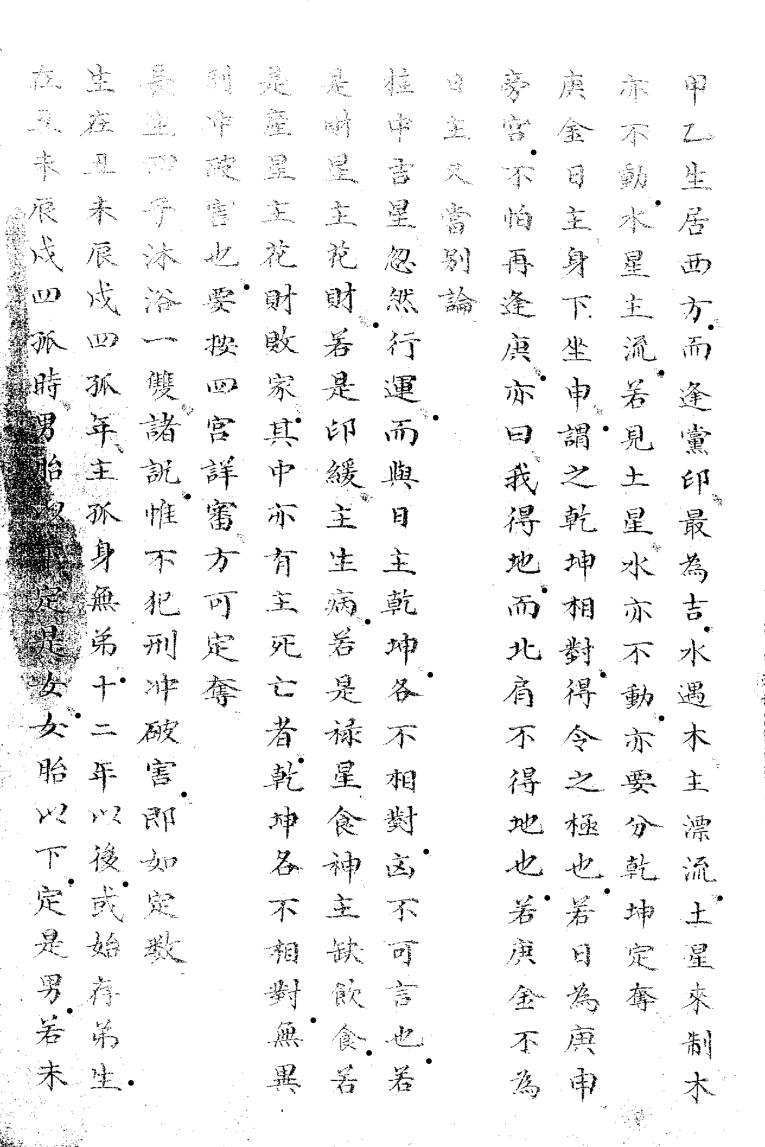 甲乙生居西方而逢黨印最為吉水遇木主漂流土星來制木
亦不動水星主流若見土星水亦不動亦要分乾坤定奪
庚金日主身下坐申謂之乾坤相對得令之極也若日為庚申
旁宮不怕再逢庚亦曰我得地而北肩不得地也若庚金不為
日主又當別論
柱中吉星忽然行運而與日主乾坤各不相對凶不可言也若
是財星主花財若是印緩主生病若是祿星食神主缺飲食若
是產星主花財敗家其中亦有主死亡者乾坤各不相對無異
刑冲破害也要按四宮詳審方可定奪
長生四子沐浴一雙諸説惟不犯刑冲破害即如定數
生在丑未辰戌四孤年主孤身無弟十二年以後或始存弟生
在丑未辰戌四孤時男胎定是女女胎以下定是男若未